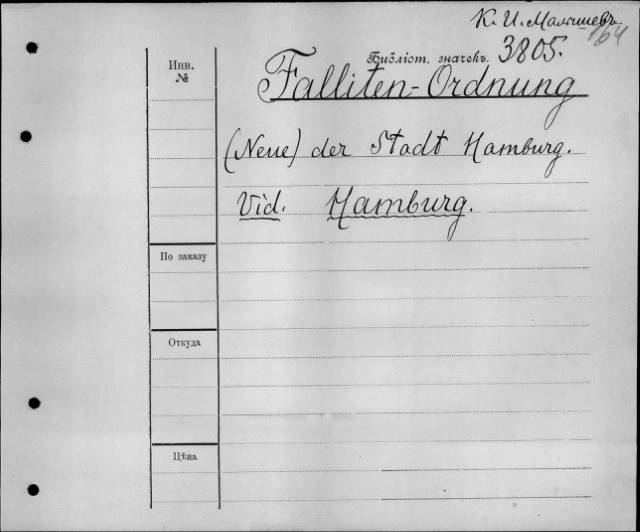 К. И. Малышевъ.
164
Библіот. значекъ. 3805.
Инв.
№
Falliten-Ordnung
(Neue) der Stadt Hamburg.
Vid. Hamburg.
По заказу
Откуда
Цѣна